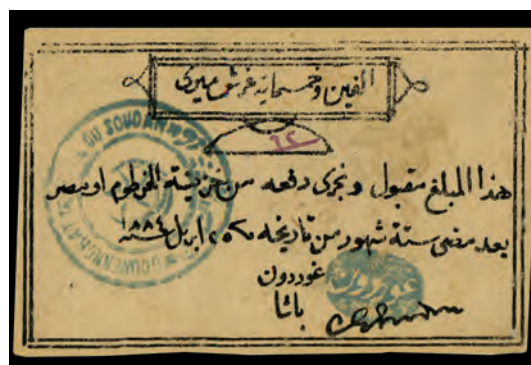 الفين وخمسماية غرش ميرى
٦٢
DU SOUDAN
هذا المبلغ مقبول ونجرى دفعه من خزينة الخرطوم او بمصر
بعد مضى ستة شهور من تاريخه ٢٥ ابريل ١٨٨٤
غوردون
باشا
غوردون